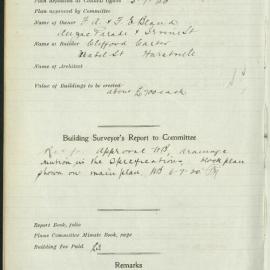 Plan deposited at Council Office 5-7-20
Plan approved by Committee
Name of Owner F. A. & F. E. Bland
Anzac Parade &
Name of Builder Clifford Carter
Mabel St Hurstville
Name of Architect
Value of Buildings to be erected
about £700 each
Building Surveyor's Report to Committee
approval drainage
in the specifications. Block plan
shown on main plan, 6-7-20
Report Book, folio
Plans Committee Minute Book, page
Building Fee Paid
Remarks